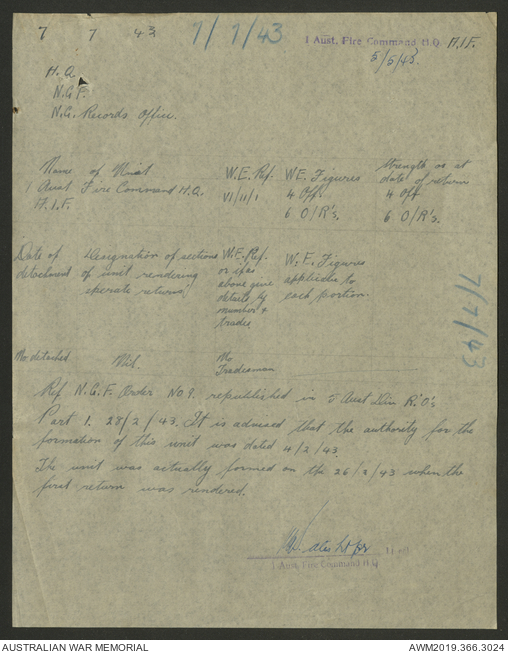 7 7 43 7/7/43 1 Aust. Fire Command H.Q. A.I.F.
5/5/43.
H.Q.
N.G.F.
N.G. Records Office.
Name of Unit W.E. Ref. W.E. Figures Strength as at
1 Aust Fire Command H.Q. VI/11/1 4 Off. date of return
A.I.F. 6 O/R's. 4 Off
6 O/R's.
Date of Designation of sections W.E. Ref. W.E. Figures
detachment of unit rendering or if as applicable to
separate returns. above give each portion.
details by
number &
trades
7/7/43
No detached Nil. No
Tradesman
Ref N.G.F. Order No 9. republished in 5 Aust Div R.O's
Part 1. 28/2/43. It is advised that the authority for the
formation of this unit was dated 4/2/43.
The unit was actually formed on the 26/2/43 when the
first return was rendered.
Lieut
1 Aust. Fire Command H.Q
AUSTRALIAN WAR MEMORIAL AWM2019.366.3024